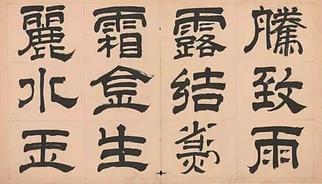 騰致雨
露結爲
霜金生
麗水玉